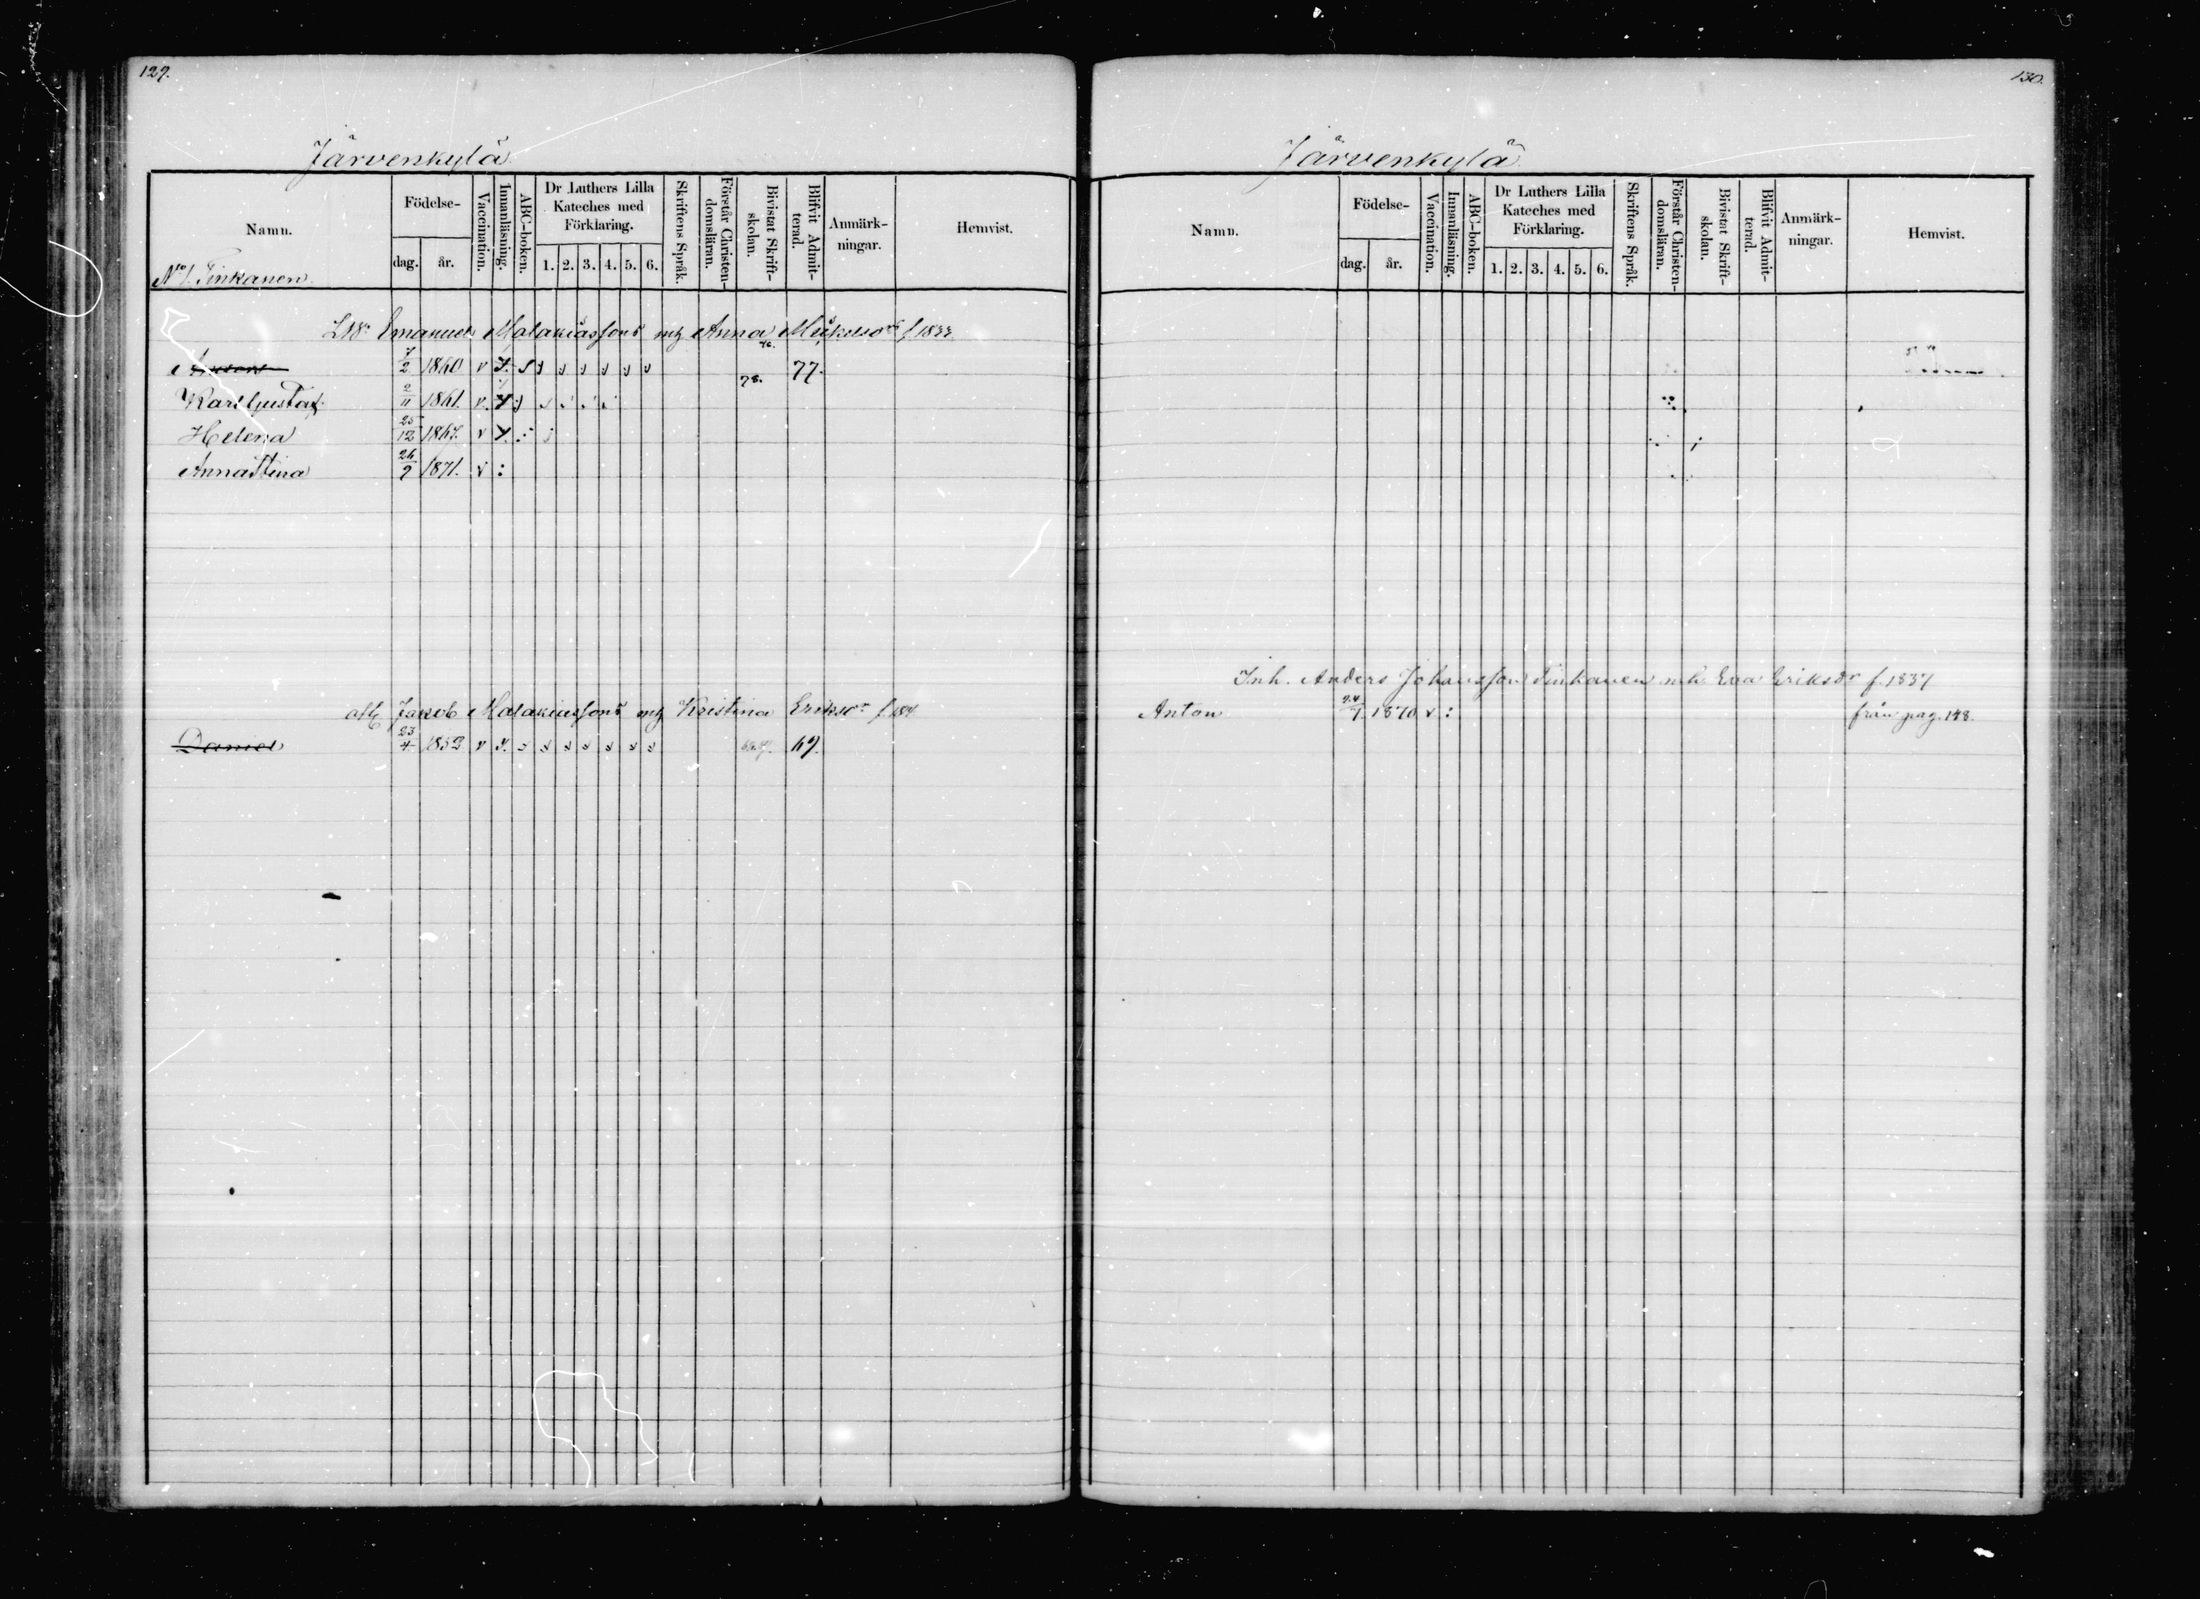 129.
Järvenkylä
Namn.
Födelse-
dag.
år.
Vaccination.
Innanläsning.
ABC-boken.
Dr Luthers Lilla Kateches med Förklaring.
1. 2. 3. 4. 5. 6.
Skriftens Språk.
Förstår Christen-domsläran.
Bivistat Skrift-skolan.
Blifvit Admit-terad.
Anmärk-ningar.
Hemvist.
No 1. Tinkanen.
Emanuel Malakiassons Anna f. 1833
7/2 1860 v 76. 77.
Karl Gustaf 2/11 1861. v. 78.
Helena 25/12 1867. v
Annastina 26/9 1871. v :
Jakob Malakiassons Kristina Eriksdr
Daniel 23/4 1852 v 69.
130.
Järvenkylä
Namn.
Födelse-
dag.
år.
Vaccination.
Innanläsning.
ABC-boken.
Dr Luthers Lilla Kateches med Förklaring.
1. 2. 3. 4. 5. 6.
Skriftens Språk.
Förstår Christen-domsläran.
Bivistat Skrift-skolan.
Blifvit Admit-terad.
Anmärk-ningar.
Hemvist.
Inh. Anders Johansson Tinkanen Eva Eriksdr f. 1837
Anton 24/7 1870 v : från pag. 148.